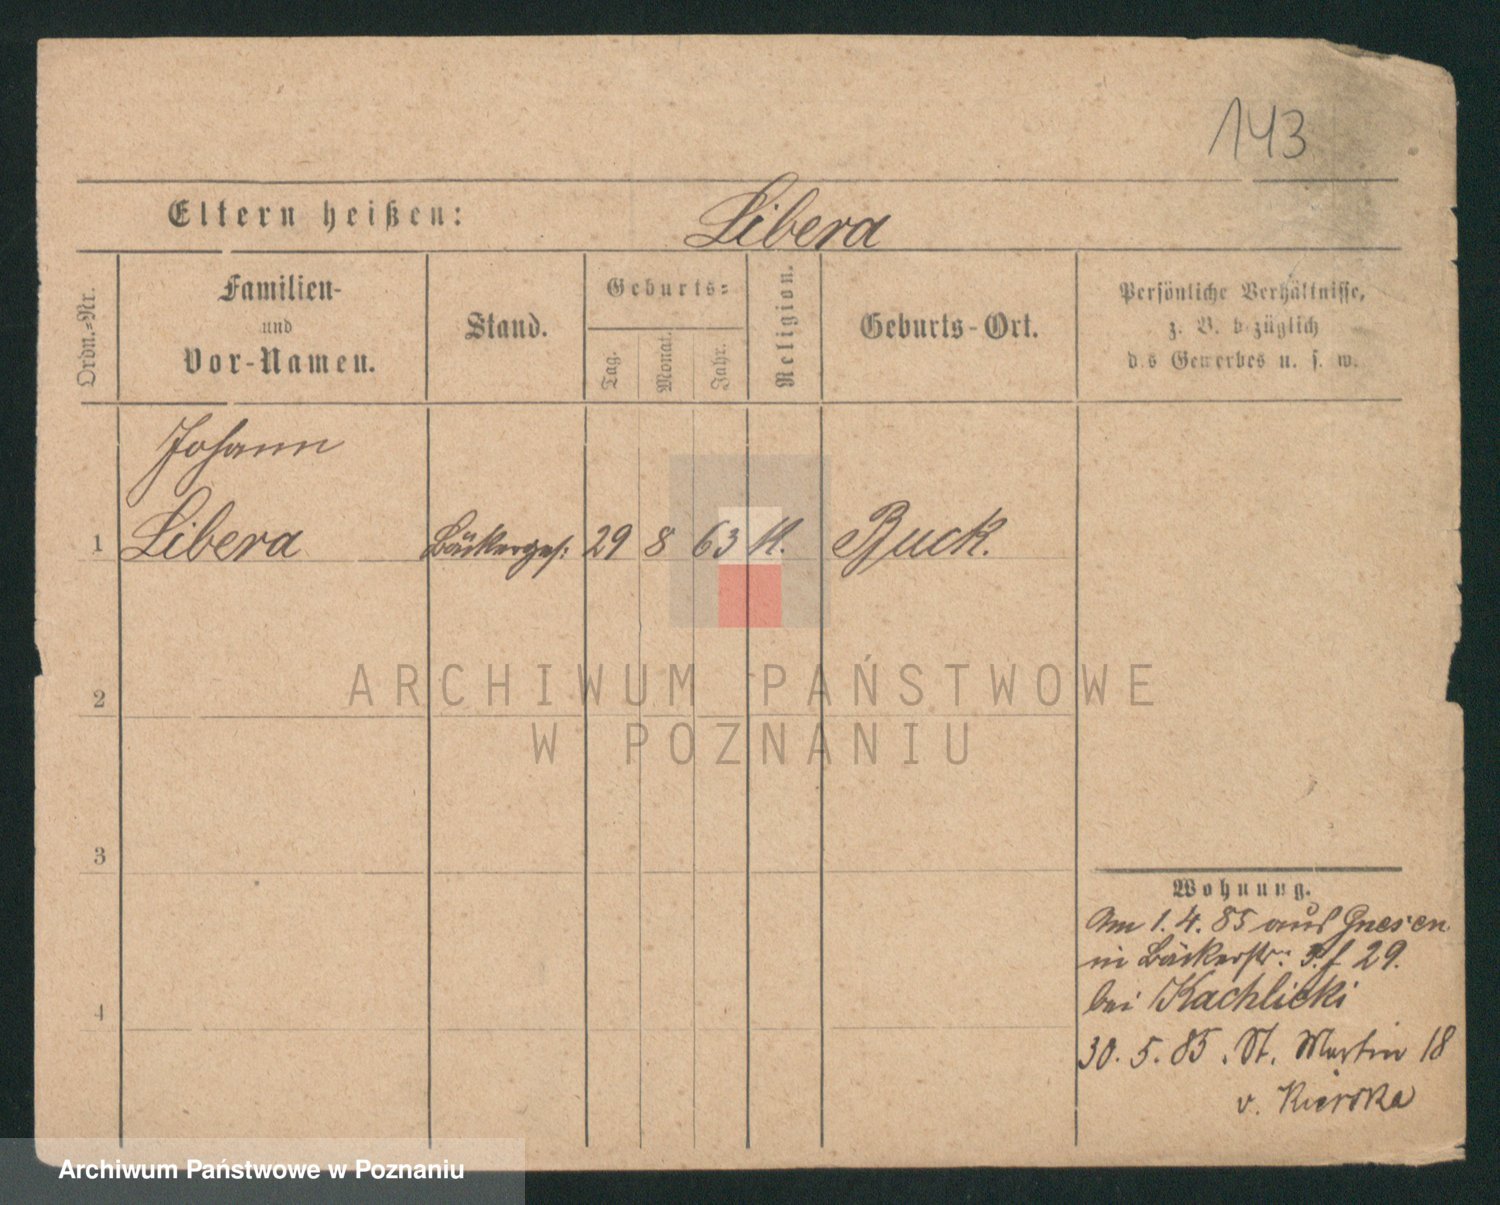 143
Eltern heißen: Libera
Ordn.=Nr.
Familien-
und
Vor-Namen.
Stand.
Geburts=
Tag.
Monat.
Jahr.
Religion.
Geburts-Ort.
Persönliche Verhältnisse,
z. B. bezüglich
des Gewerbes u. s. w.
Johann
1 Libera Bäckerges: 29 8 63 K. Buck.
ARCHIWUM PAŃSTWOWE
W POZNANIU
2
3
4
Wohnung.
Am 1. 4. 85 aus Gnesen
in Bäckerstr: 29.
bei Kachlicki
30. 5. 85. St. Martin 18
v.
Archiwum Państwowe w Poznaniu